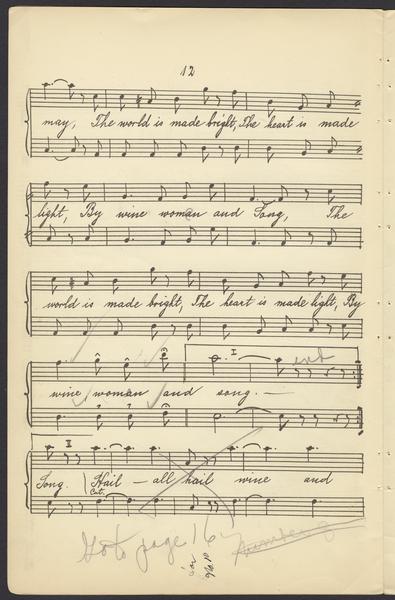 12
may, The world is made bright, The heart is made
light, By wine woman and Song, The
world is made bright, The heart is made light, By
I
cut
wine woman and song. —
II
Song. Hail — all hail wine and
Cat.
Go to page 16